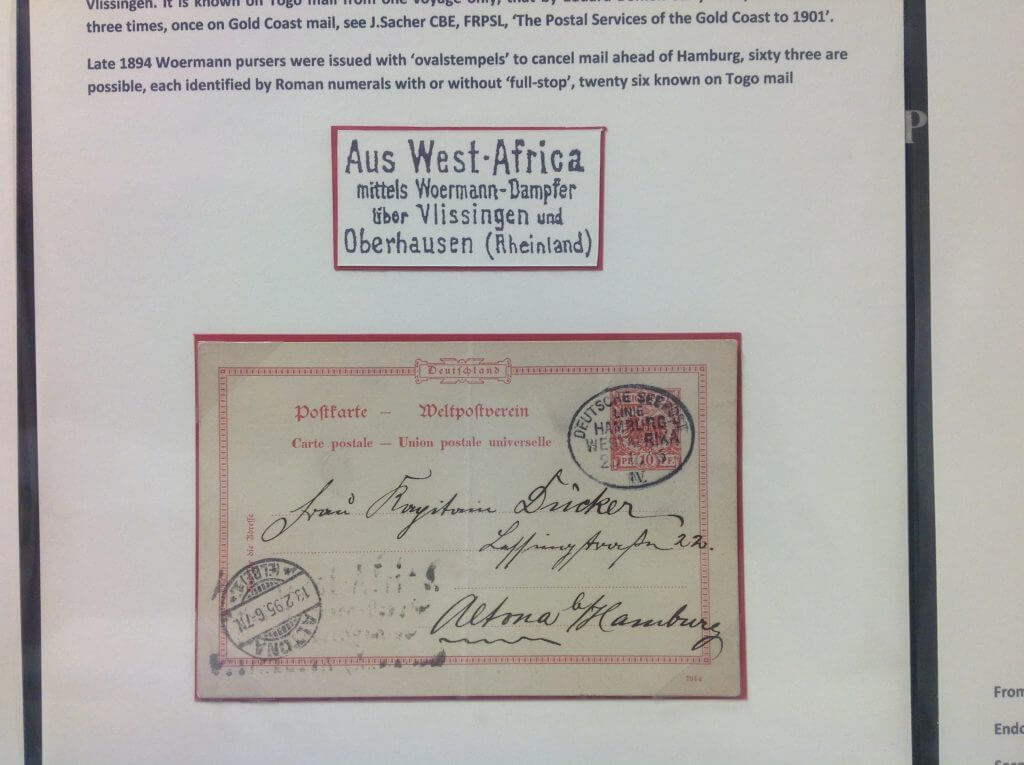 Vlissingen. It is known on Togo mail from one voyage only, that by Eduard
three times, once on Gold Coast mail, see J.Sacher CBE, FRPSL, ‘The Postal Services of the Gold Coast to 1901’.
Late 1894 Woermann pursers were issued with ‘ovalstempels’ to cancel mail ahead of Hamburg, sixty three are
possible, each identified by Roman numerals with or without ‘full-stop’, twenty six known on Togo mail
P
Aus West-Africa
mittels Woermann-Dampfer
über Vlissingen und
Oberhausen (Rheinland)
Deutschland
Postkarte — Weltpostverein
Carte postale — Union postale universelle
DEUTSCHE SEEPOST
LINIE
HAMBURG
WESTAFRIKA
IV.
PF 10 PF
Frau Kapitain Dücker
Lessingstraße 22.
Altona b/Hamburg
die Adresse
ALTONA
13.2.95.6-7N.
(ELBE)
From
Endo